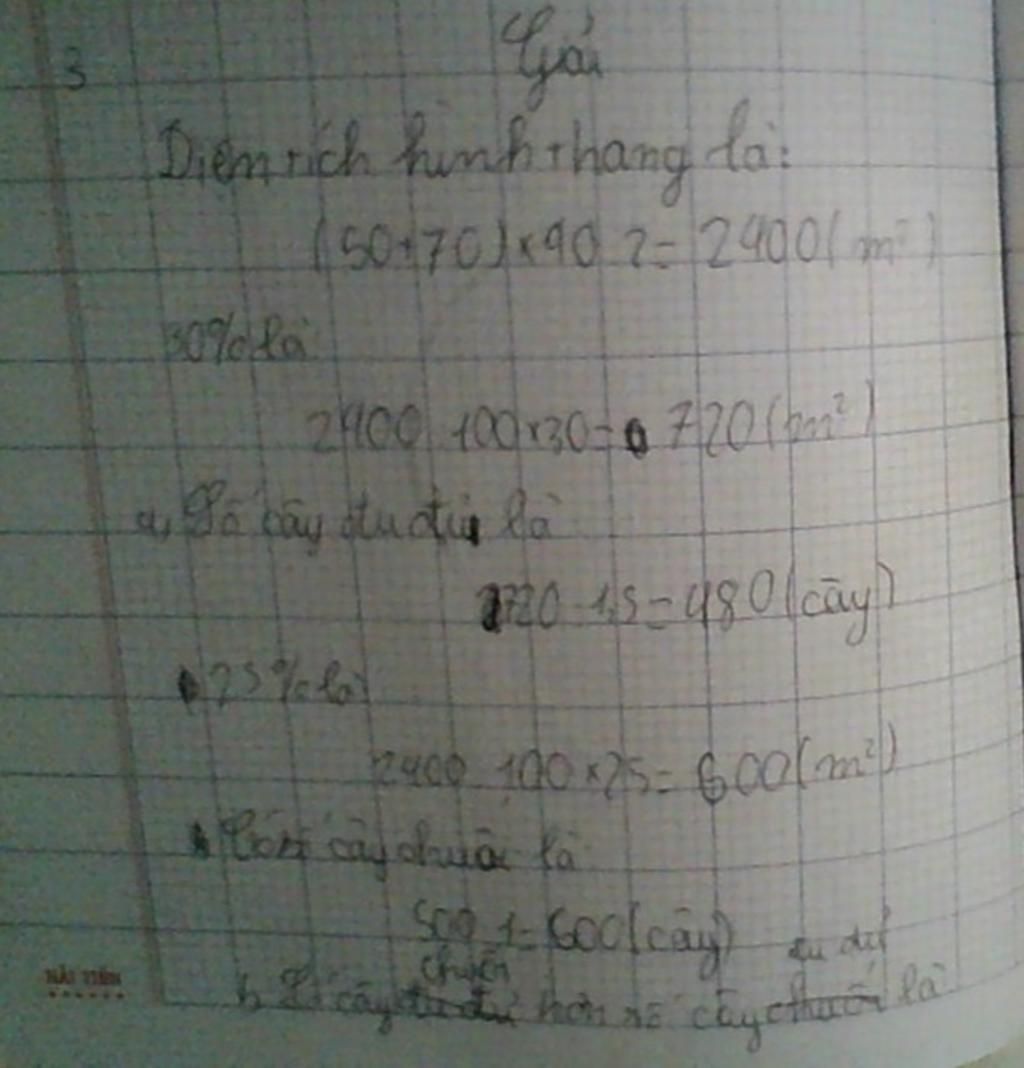 3
Giải
Diện tích hình thang là:
(50+70)×40 2= 2400(m²)
30% là
2400 100×30= 720(m²)
a, Số cây đu đủ là
720 1,5=480(cây)
25% là
2400 100×25=600(m²)
cây chuối là
1=600(cây)
chuối đu đủ
b, Số cây hơn số cây là
HẢI TIẾN